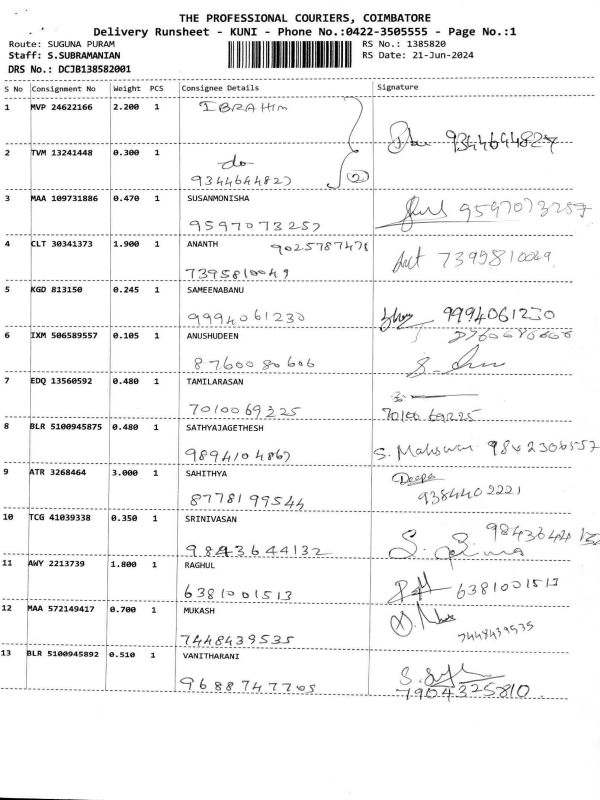 THE PROFESSIONAL COURIERS, COIMBATORE
Delivery Runsheet - KUNI - Phone No.:0422-3505555 - Page No.:1
Route: SUGUNA PURAM RS No.: 1385820
Staff: S.SUBRAMANIAN RS Date: 21-Jun-2024
DRS No.: DCJB138582001
S No Consignment No Weight PCS Consignee Details Signature
1 MVP 24622166 2.200 1 IBRAHIM
9344644827
2 TVM 13241448 0.300 1
do
9344644827 2
3 MAA 109731886 0.470 1 SUSANMONISHA
9597073257 9597073257
4 CLT 30341373 1.900 1 ANANTH 9025787471
7395810049 7395810049
5 KGD 813150 0.245 1 SAMEENABANU
9994061230 9994061230
6 IXM 506589557 0.105 1 ANUSHUDEEN
8760080606
7 EDQ 13560592 0.480 1 TAMILARASAN
7010069225 7010069225
8 BLR 5100945875 0.480 1 SATHYAJAGETHESH
9894104867 S. Maheswari 9842306557
9 ATR 3268464 3.000 1 SAHITHYA Deepa
8778199544 9384402221
10 TCG 41039338 0.350 1 SRINIVASAN 9843644132
9843644132
11 AWY 2213739 1.800 1 RAGHUL
6381001513 6381001513
12 MAA 572149417 0.700 1 MUKASH
7448439535 7448439535
13 BLR 5100945892 0.510 1 VANITHARANI
9688747705 7904325810